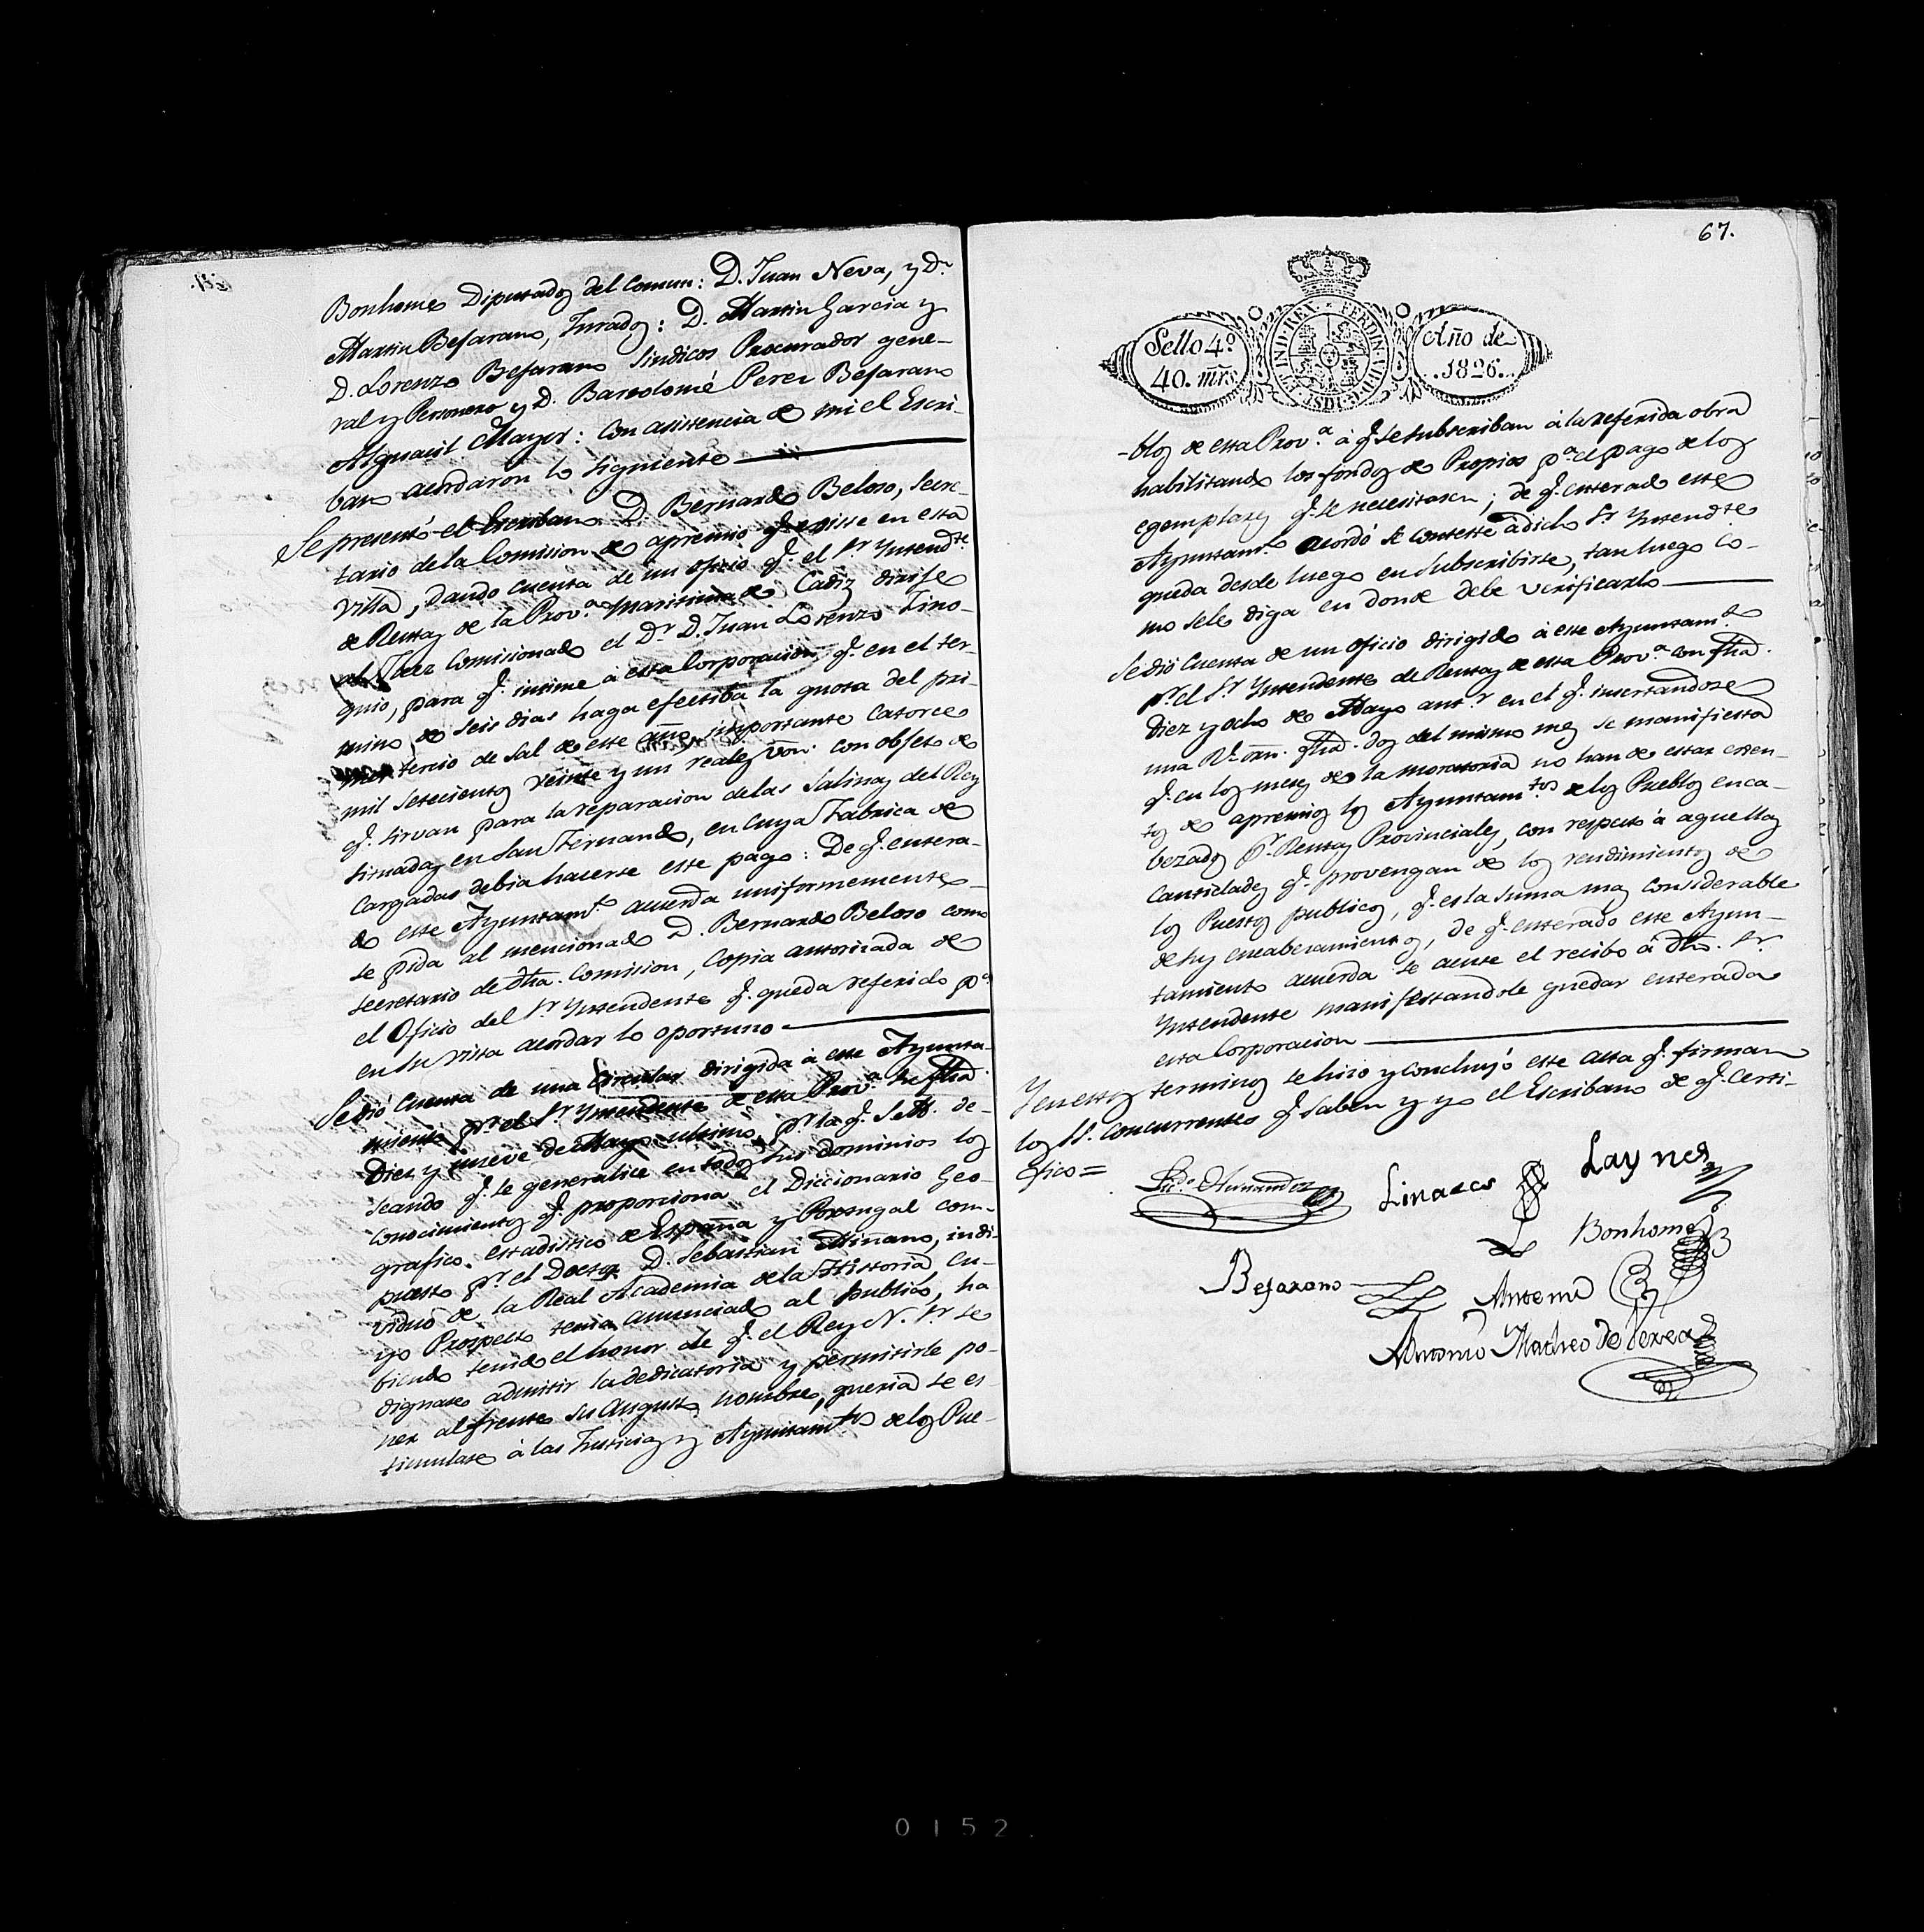 Bonhome Diputados del Comun: D. Juan Neva, y Dn.
Martin Bejarano, Jurados: D. Martin Garcia y
D. Lorenzo Bejarano Sindicos Procurador gene-
ral y Personero y D. Bartolomé Perez Bejarano
Alguacil Mayor: con asistencia de mi el Escri-
bano acordaron lo siguiente
Se presentó el Escribano D. Bernardo Beloso, Secre-
tario de la Comision de apremio q.e existe en esta
Villa, dando cuenta de un oficio q.e el Sr. Yntend.te
de Rentas de la Prov.a Maritima de Cadiz dirije
al Juez Comisionado el Dr. D. Juan Lorenzo Tino-
quio, para q.e intime á esta Corporacion q.e en el ter-
mino de seis dias haga efectiba la quota del pri-
mer tercio de Sal de este año, importante Catorce
mil setecientos veinte y un reales von. con objeto de
q.e sirvan para la reparacion de las Salinas del Rey
situadas en San Fernando, en cuya Fabrica de
Cargadas debia hacerse este pago: De q.e entera-
do este Ayuntam.to acuerda uniformemente
se pida al mencionado D. Bernardo Beloso como
Secretario de dha. Comision, Copia autorizada de
el Oficio del Sr. Yntendente q.e queda referido p.a
en su vista acordar lo oportuno
Se dió Cuenta de una Circular dirigida á este Ayunta-
miento p.r el Sr. Yntendente de esta Prov.a su fha.
Diez y nueve de Mayo ultimo, p.r la q.e S.M. de-
seando q.e se generalice en todos sus dominios los
Conocimientos q.e proporciona el Diccionario Geo-
grafico, estadistico de España y Portugal com-
puesto p.r el Doctor D. Sebastian Miñano, indi-
viduo de la Real Academia de la Historia, Cu-
yo Prospecto tenia anunciado al publico, ha
biendo tenido el honor de q.e el Rey N. Sr. se
dignase admitir la dedicatoria y permitirle po-
ner al frente su Augusto nombre, queria se es-
timulase á las Justicias y Ayuntam.tos de los Pue-
67.
Sello 4º
40. mrs.
Año de
1826.
-blos de esta Prov.a á q.e se subscriban á la referida obra
habilitando los fondos de Propios p.a el pago de los
egemplares q.e se necesitasen; de q.e enterado este
Ayuntam.to acordó se conteste á dicho Sr. Yntend.te
queda desde luego en Subscribirse, tan luego co-
mo se le diga en donde debe verificarlo
Se dió Cuenta de un Oficio dirigido á este Ayuntam.to
p.r el Sr. Yntendente de Rentas de esta Prov.a con fha.
Diez y ocho de Mayo ant.r en el q.e insertandose
una Rl. orn. fha. dos del mismo mes se manifiesta
q.e en los meses de la moratoria no han de estar esen-
tos de apremios los Ayuntam.tos de los Pueblos enca-
bezados p.r Rentas Provinciales, con respecto á aquellas
Cantidades q.e provengan de los rendimientos de
los Puestos publicos, q.e es la suma mas considerable
de sus encabezamientos, de q.e enterado este Ayun-
tamiento acuerda se acuse el recibo á dho. Sr.
Yntendente manifestandole quedar enterada
esta Corporacion
Y en estos terminos se hizo y concluyó este acta q.e firman
los SS. concurrentes q.e saben y yo el Escribano de q.e Certi-
fico=
Licdo. Hernandez
Linares
Laynes
Bonhome
Bejarano
Antemi
Antonio Matheo de Perea
0152.